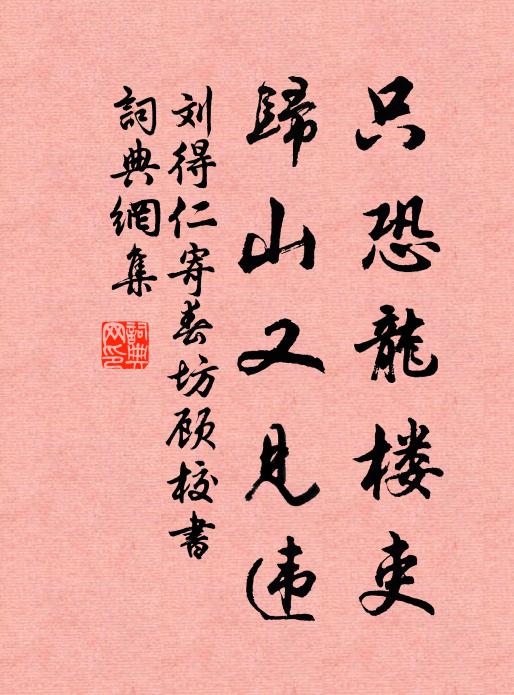 只恐龍楼吏
歸山又见违
刘得仁寄春坊顾校書
詞典網集
詞典网印